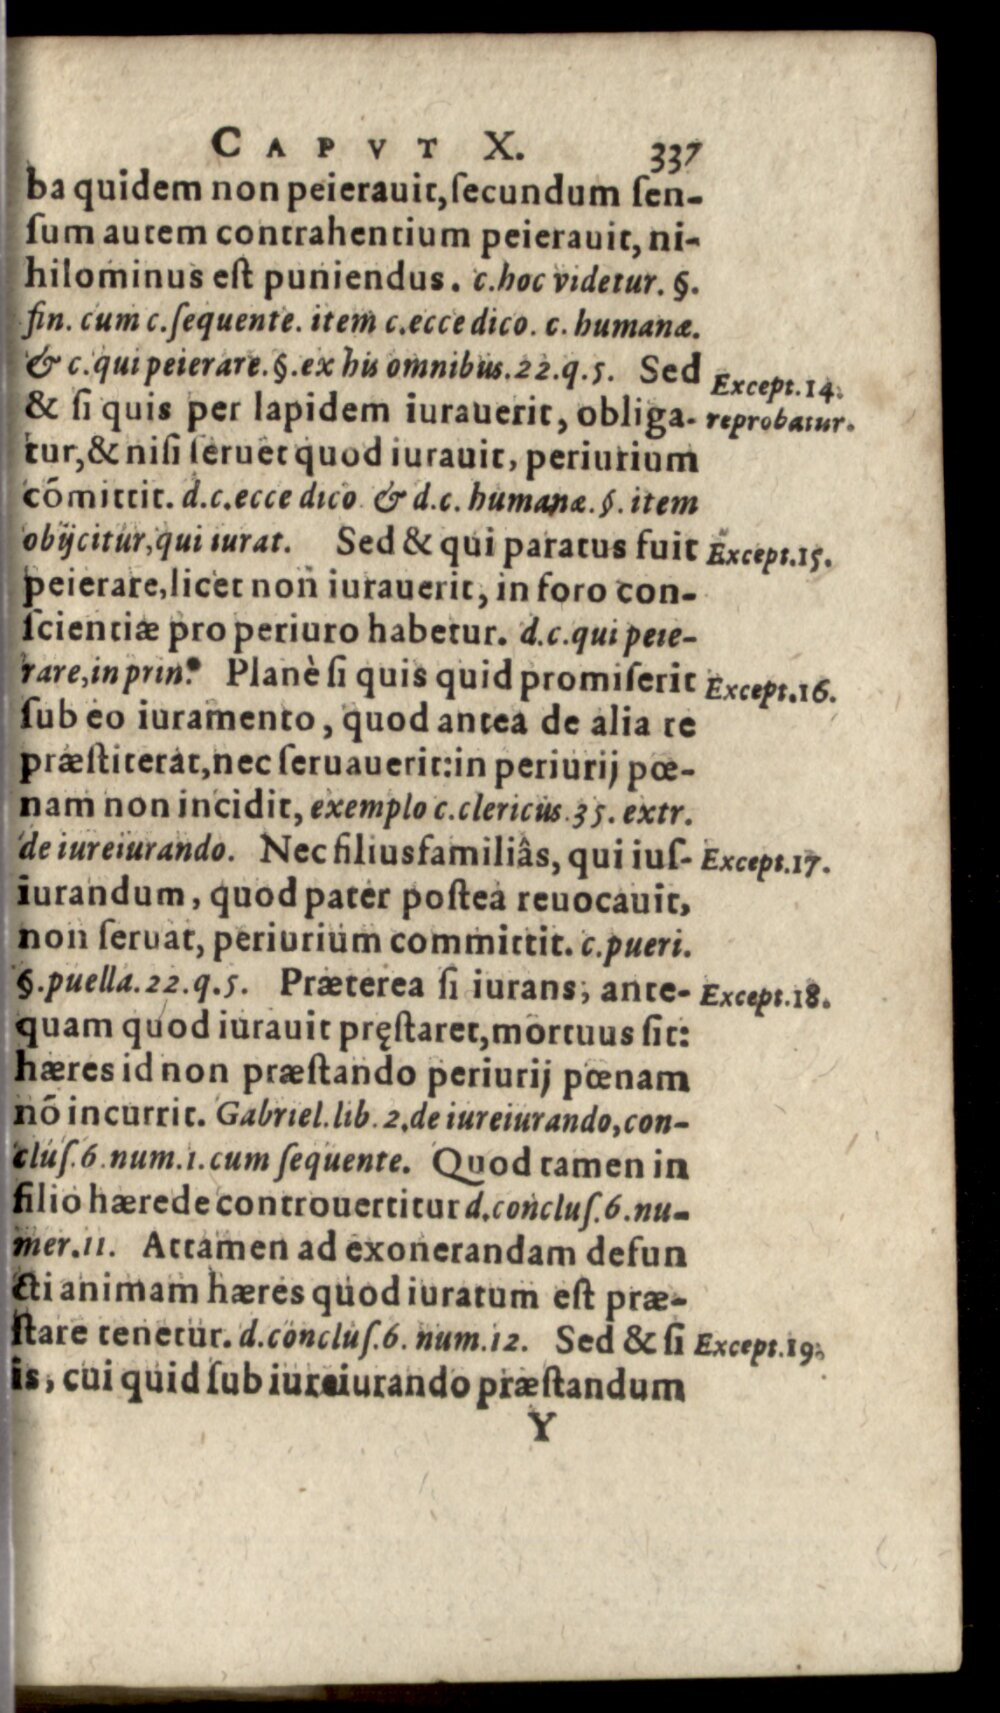 CAPVT X. 337
ba quidem non peierauit, ſecundum ſen-
ſum autem contrahentium peierauit, ni-
hilominus eſt puniendus. c.hoc videtur. §.
fin. cum c.ſequente. item c.ecce dico. c. humanæ.
& c.qui peierare.§.ex his omnibus.22.q.5. Sed
Except.14.
& ſi quis per lapidem iurauerit, obliga-
reprobatur.
tur,& niſi ſeruet quod iurauit, periurium
cõmittit. d.c.ecce dico & d.c. humanæ.§.item
obijcitur,qui iurat. Sed & qui paratus fuit
Except.15.
peierare,licet non iurauerit, in foro con-
ſcientiæ pro periuro habetur. d.c.qui peie-
rare,in prin. Planè ſi quis quid promiſerit
Except.16.
ſub eo iuramento, quod antea de alia re
præſtiterat,nec ſeruauerit:in periurij pœ-
nam non incidit, exemplo c.clericus.35. extr.
de iureiurando. Nec filiusfamiliâs, qui iuſ-
Except.17.
iurandum, quod pater poſtea reuocauit,
non ſeruat, periurium committit. c.pueri.
§.puella.22.q.5. Præterea ſi iurans, ante-
Except.18.
quam quod iurauit pręſtaret,mortuus ſit:
hæres id non præſtando periurij pœnam
nõ incurrit. Gabriel.lib.2.de iureiurando,con-
cluſ.6.num.1.cum ſequente. Quod tamen in
filio hærede controuertitur d.concluſ.6.nu-
mer.11. Attamen ad exonerandam defun
cti animam hæres quod iuratum eſt præ-
ſtare tenetur. d.concluſ.6. num.12. Sed & ſi
Except.19.
is, cui quid ſub iureiurando præſtandum
Y